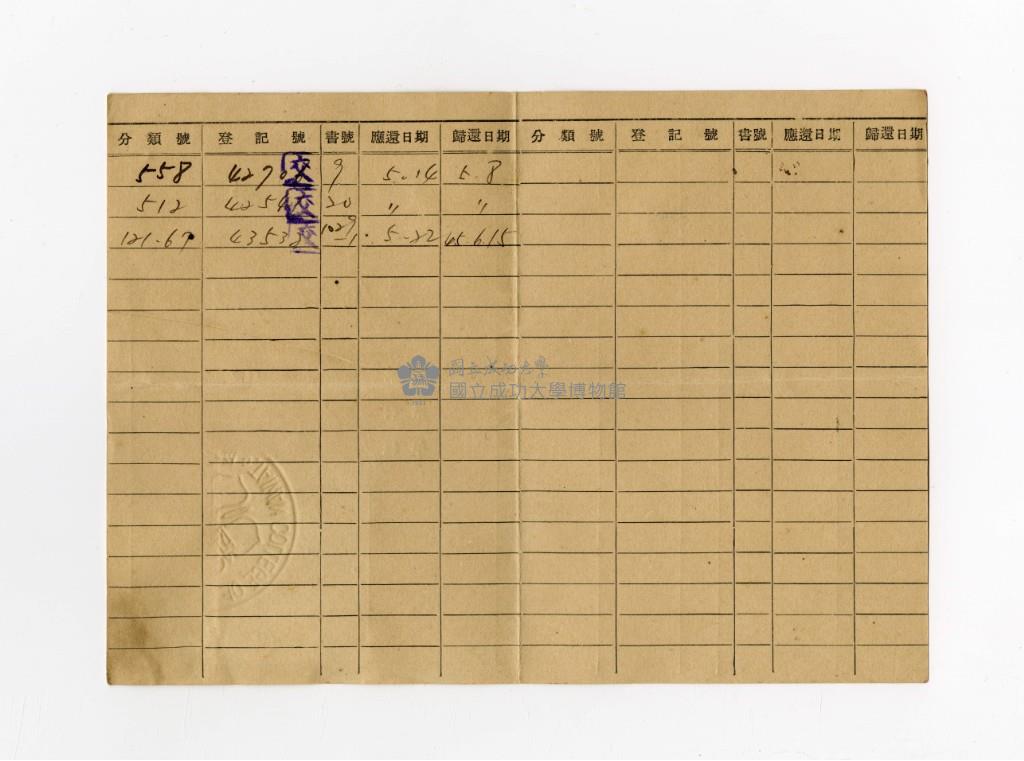 分類號 登記號 書號 應還日期 歸還日期 分類號 登記號 書號 應還日期 歸還日期
558 交 9 5-14 5-8
512 交 20 〃 〃
121-67 交 5-22 45 6.15
國立成功大學
國立成功大學博物館